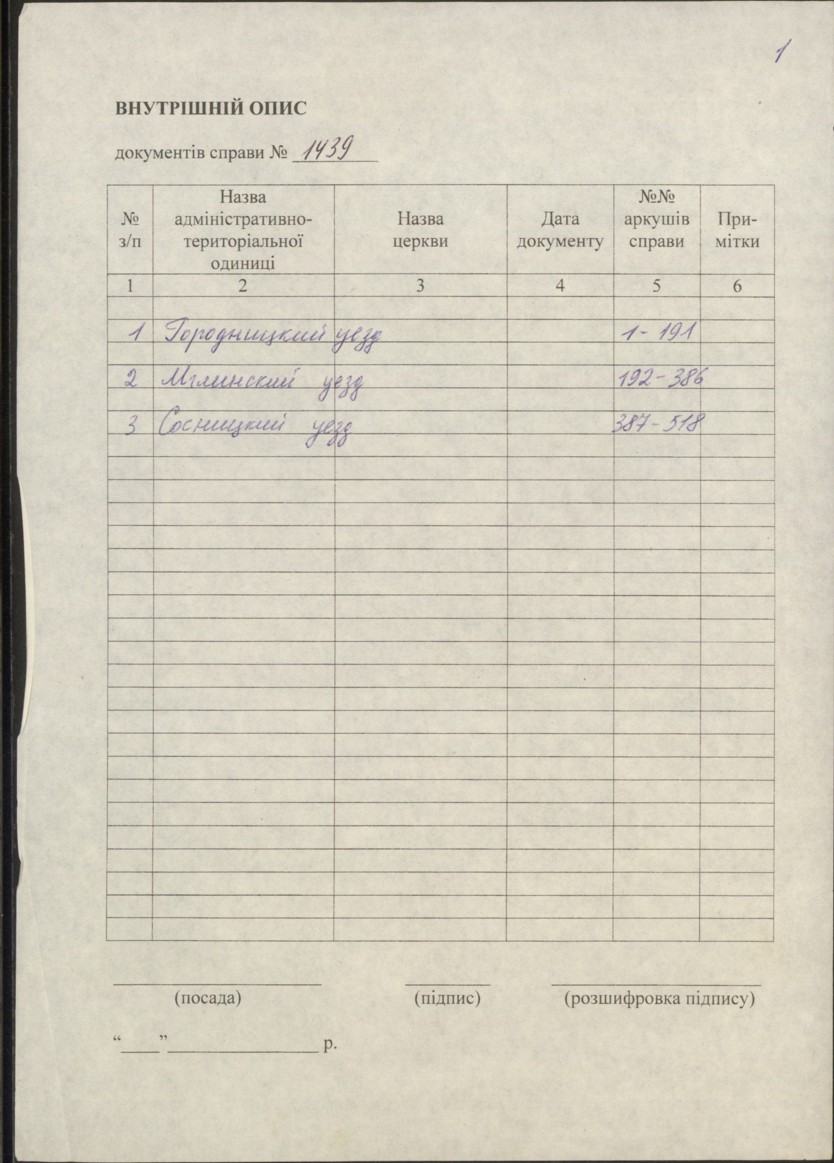 1
ВНУТРІШНІЙ ОПИС
документів справи № 1439
№ з/п
Назва адміністративно-територіальної одиниці
Назва церкви
Дата документу
№№ аркушів справи
При-мітки
1 2 3 4 5 6
1 Городницкий уезд 1-191
2 Мглинский уезд 192-386
3 Сосницкий уезд 387-518
(посада) (підпис) (розшифровка підпису)
“____”________________ р.